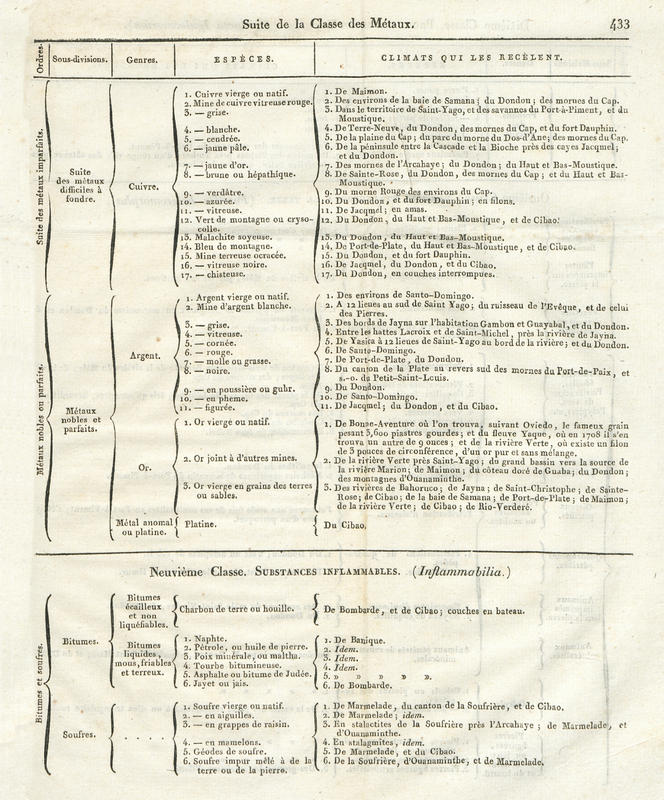 Suite de la Classe des Métaux. 433
Ordres. Sous-divisions. Genres. ESPÈCES. CLIMATS QUI LES RECÈLENT.
Suite des métaux imparfaits.
Suite
des métaux
difficiles à
fondre.
Cuivre.
1. Cuivre vierge ou natif.
2. Mine de cuivre vitreuse rouge.
3. — grise.
4. — blanche.
5. — cendrée.
6. — jaune pâle.
7. — jaune d'or.
8. — brune ou hépathique.
9. — verdâtre.
10. — azurée.
11. — vitreuse.
12. Vert de montagne ou cryso-
colle.
13. Malachite soyeuse.
14. Bleu de montagne.
15. Mine terreuse ocracée.
16. — vitreuse noire.
17. — chisteuse.
1. De Maimon.
2. Des environs de la baie de Samana; du Dondon; des mornes du Cap.
3. Dans le territoire de Saint-Yago, et des savannes du Port-à-Piment, et du
Moustique.
4. De Terre-Neuve, du Dondon, des mornes du Cap, et du fort Dauphin.
5. De la plaine du Cap; du parc du morne du Dos-d'Ane; des mornes du Cap.
6. De la péninsule entre la Cascade et la Bioche près des cayes Jacquel;
et du Dondon.
7. Des mornes de l'Arcahaye; du Dondon; du Haut et Bas-Moustique.
8. De Sainte-Rose, du Dondon, des mornes du Cap; et du Haut et Bas-
Moustique.
9. Du morne Rouge des environs du Cap.
10. Du Dondon, et du fort Dauphin; en filons.
11. De Jacmel; en amas.
12. Du Dondon, du Haut et Bas-Moustique, et de Cibao.
13. Du Dondon, du Haut et Bas-Moustique.
14. De Port-de-Plate, du Haut et Bas-Moustique, et de Cibao.
15. Du Dondon, et du fort Dauphin.
16. De Jacmel, du Dondon, et du Cibao.
17. Du Dondon, en couches interrompues.
Métaux nobles ou parfaits.
Métaux
nobles et
parfaits.
Argent.
1. Argent vierge ou natif.
2. Mine d'argent blanche.
3. — grise.
4. — vitreuse.
5. — cornée.
6. — rouge.
7. — molle ou grasse.
8. — noire.
9. — en poussière ou guhr.
10. — en pheme.
11. — figurée.
1. Des environs de Santo-Domingo.
2. A 12 lieues au sud de Saint Yago; du ruisseau de l'Evêque, et de celui
des Pierres.
3. Des bords de Jayna sur l'habitation Gambon et Guayabal, et du Dondon.
4. Entre les hattes Lacroix et de Saint-Michel, près la rivière de Jayna.
5. De Yasica à 12 lieues de Saint-Yago au bord de la rivière; et du Dondon.
6. De Santo-Domingo.
7. De Port-de-Plate, du Dondon.
8. Du canton de la Plate au revers sud des mornes du Port-de-Paix, et
s.-o. du Petit-Saint-Louis.
9. Du Dondon.
10. De Santo-Domingo.
11. De Jacmel; du Dondon, et du Cibao.
Or.
1. Or vierge ou natif.
2. Or joint à d'autres mines.
3. Or vierge en grains des terres
ou sables.
1. De Bonae-Aventure où l'on trouva, suivant Oviedo, le fameux grain
pesant 3,600 piastres gourdes; et du fleuve Yaque, où en 1708 il s'en
trouva un autre de 9 onces; et de la rivière Verte, où existe un filon
de 3 pouces de circonférence, d'un or pur et sans mélange.
2. De la rivière Verte près Saint-Yago; du grand bassin vers la source de
la rivière Marion; de Maimon; du côteau doré de Guaba; du Dondon;
des montagnes d'Ouanaminthe.
3. Des rivières de Bahoruco; de Jayna; de Saint-Christophe; de Sainte-
Rose; de Cibao; de la baie de Samana; de Port-de-Plate; de Maimon;
de la rivière Verte; de Cibao; de Rio-Verderé.
Métal anomal
ou platine.
Platine.
Du Cibao.
Neuvième Classe. SUBSTANCES INFLAMMABLES. (Inflammabilia.)
Bitumes et soufres.
Bitumes.
Bitumes
écailleux
et non
liquéfiables.
Charbon de terre ou houille.
De Bombarde, et de Cibao; couches en bateau.
Bitumes
liquides,
mous, friables
et terreux.
1. Naphte.
2. Pétrole, ou huile de pierre.
3. Poix minérale, ou maltha.
4. Tourbe bitumineuse.
5. Asphalte ou bitume de Judée.
6. Jayet ou jais.
1. De Banique.
2. Idem.
3. Idem.
4. Idem.
5. » » » » ».
6. De Bombarde.
Soufres.
. . . . .
1. Soufre vierge ou natif.
2. — en aiguilles.
3. — en grappes de raisin.
4. — en mamelons.
5. Géodes de soufre.
6. Soufre impur mêlé à de la
terre ou de la pierre.
1. De Marmelade, du canton de la Soufrière, et de Cibao.
2. De Marmelade; idem.
3. En stalactites de la Soufrière près l'Arcahaye; de Marmelade, et
d'Ouanaminthe.
4. En stalagmites, idem.
5. De Marmelade, et du Cibao.
6. De la Soufrière, d'Ouanaminthe, et de Marmelade.